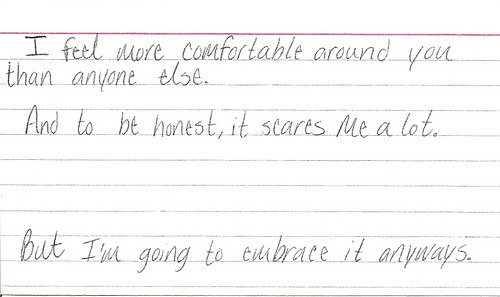 I feel more comfortable around you
than anyone else.
And to be honest, it scares me a lot.
But I'm going to embrace it anyways.